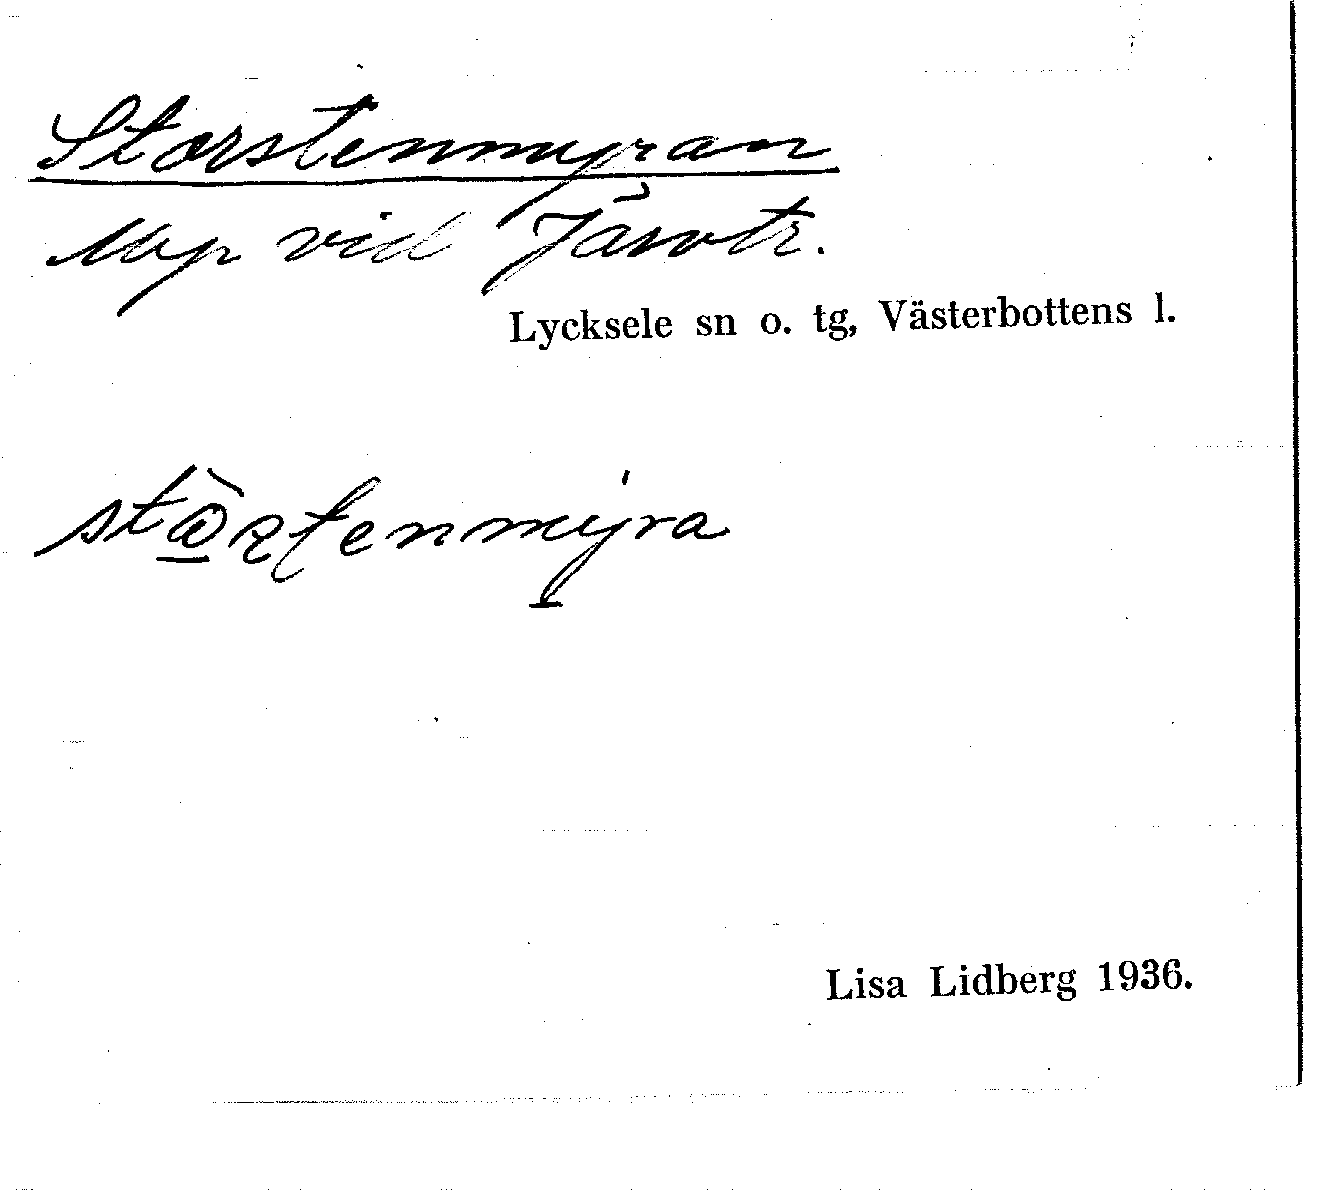 Storstenmyran
Myr vid Tåsvtr.
Lycksele sn o. tg, Västerbottens l.
Lisa Lidberg 1936.